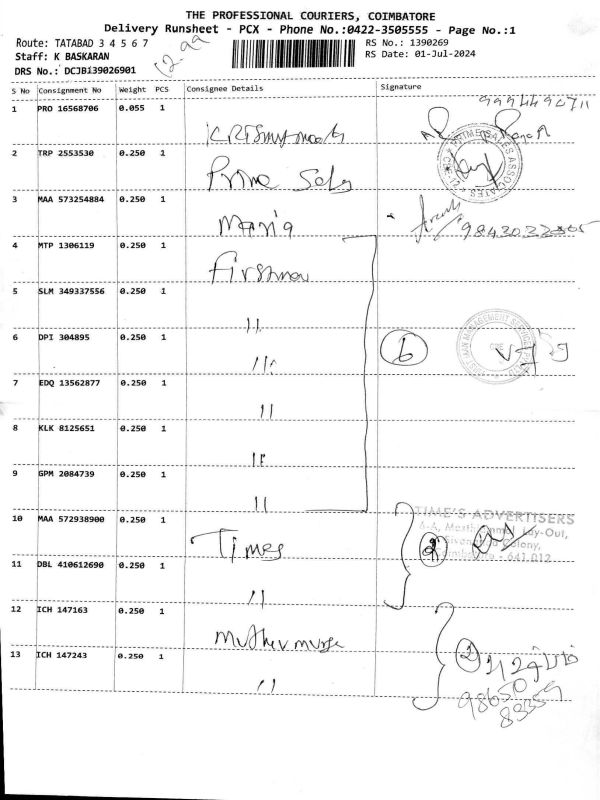 THE PROFESSIONAL COURIERS, COIMBATORE
Delivery Runsheet - PCX - Phone No.:0422-3505555 - Page No.:1
Route: TATABAD 3 4 5 6 7
RS No.: 1390269
Staff: K BASKARAN
RS Date: 01-Jul-2024
DRS No.: DCJBi39026901
S No Consignment No Weight PCS Consignee Details Signature
1 PRO 16568706 0.055 1
2 TRP 2553530 0.250 1 Prime Sales
3 MAA 573254884 0.250 1 Maria
4 MTP 1306119 0.250 1 Firstman
5 SLM 349337556 0.250 1 11
6 DPI 304895 0.250 1 11 6
7 EDQ 13562877 0.250 1 11
8 KLK 8125651 0.250 1 11
9 GPM 2084739 0.250 1 11
10 MAA 572938900 0.250 1 Times 2
TIME'S ADVERTISERS
Lay-Out,
Colony,
- 641 012
11 DBL 410612690 0.250 1 11
12 ICH 147163 0.250 1 2
13 ICH 147243 0.250 1 11
98650
83359